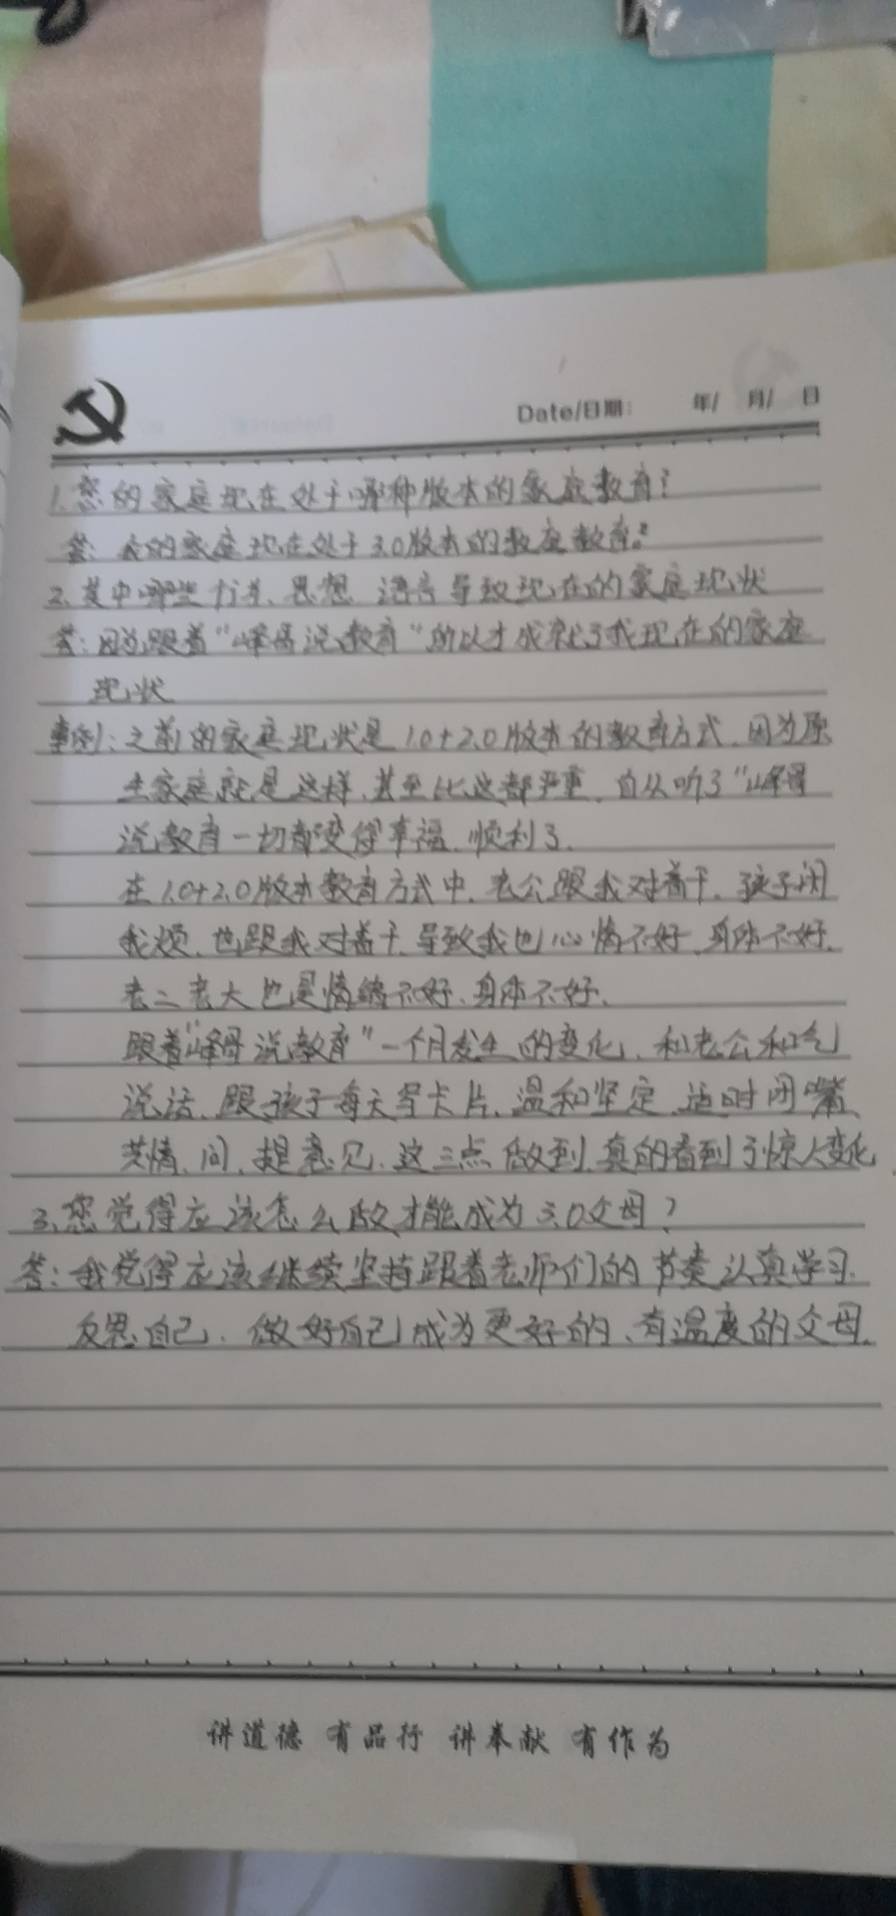 Date/日期: 年/ 月/ 日
1.您的家庭现在处于哪种版本的家庭教育?
答:我的家庭现在处于3.0版本的教庭教育。
2.其中哪些方法、思想、语言导致现在的家庭现状
答:因为跟着"峰哥说教育"所以才成就了我现在的家庭
现状
事例:之前的家庭现状是1.0+2.0版本的教育方式.因为原
生家庭就是这样,甚至比这都严重.自从听了"峰哥
说教育一切都变得幸福.顺利了.
在1.0+2.0版本教育方式中.老公跟我对着干.孩子闲
我烦.也跟我对着干.导致我也心情不好.身体不好.
老二老大也是情绪不好.身体不好.
跟着"峰哥说教育"一个月发生的变化.和老公和气
说话.跟孩子每天写卡片.温和坚定.适时闭嘴.
共情.问.提意见.这三点做到.真的看到了惊人变化
3.您觉得应该怎么做才能成为3.0父母?
答:我觉得应该继续坚持跟着老师们的节奏认真学习.
反思自己.做好自己成为更好的、有温度的父母.
讲道德 有品行 讲奉献 有作为